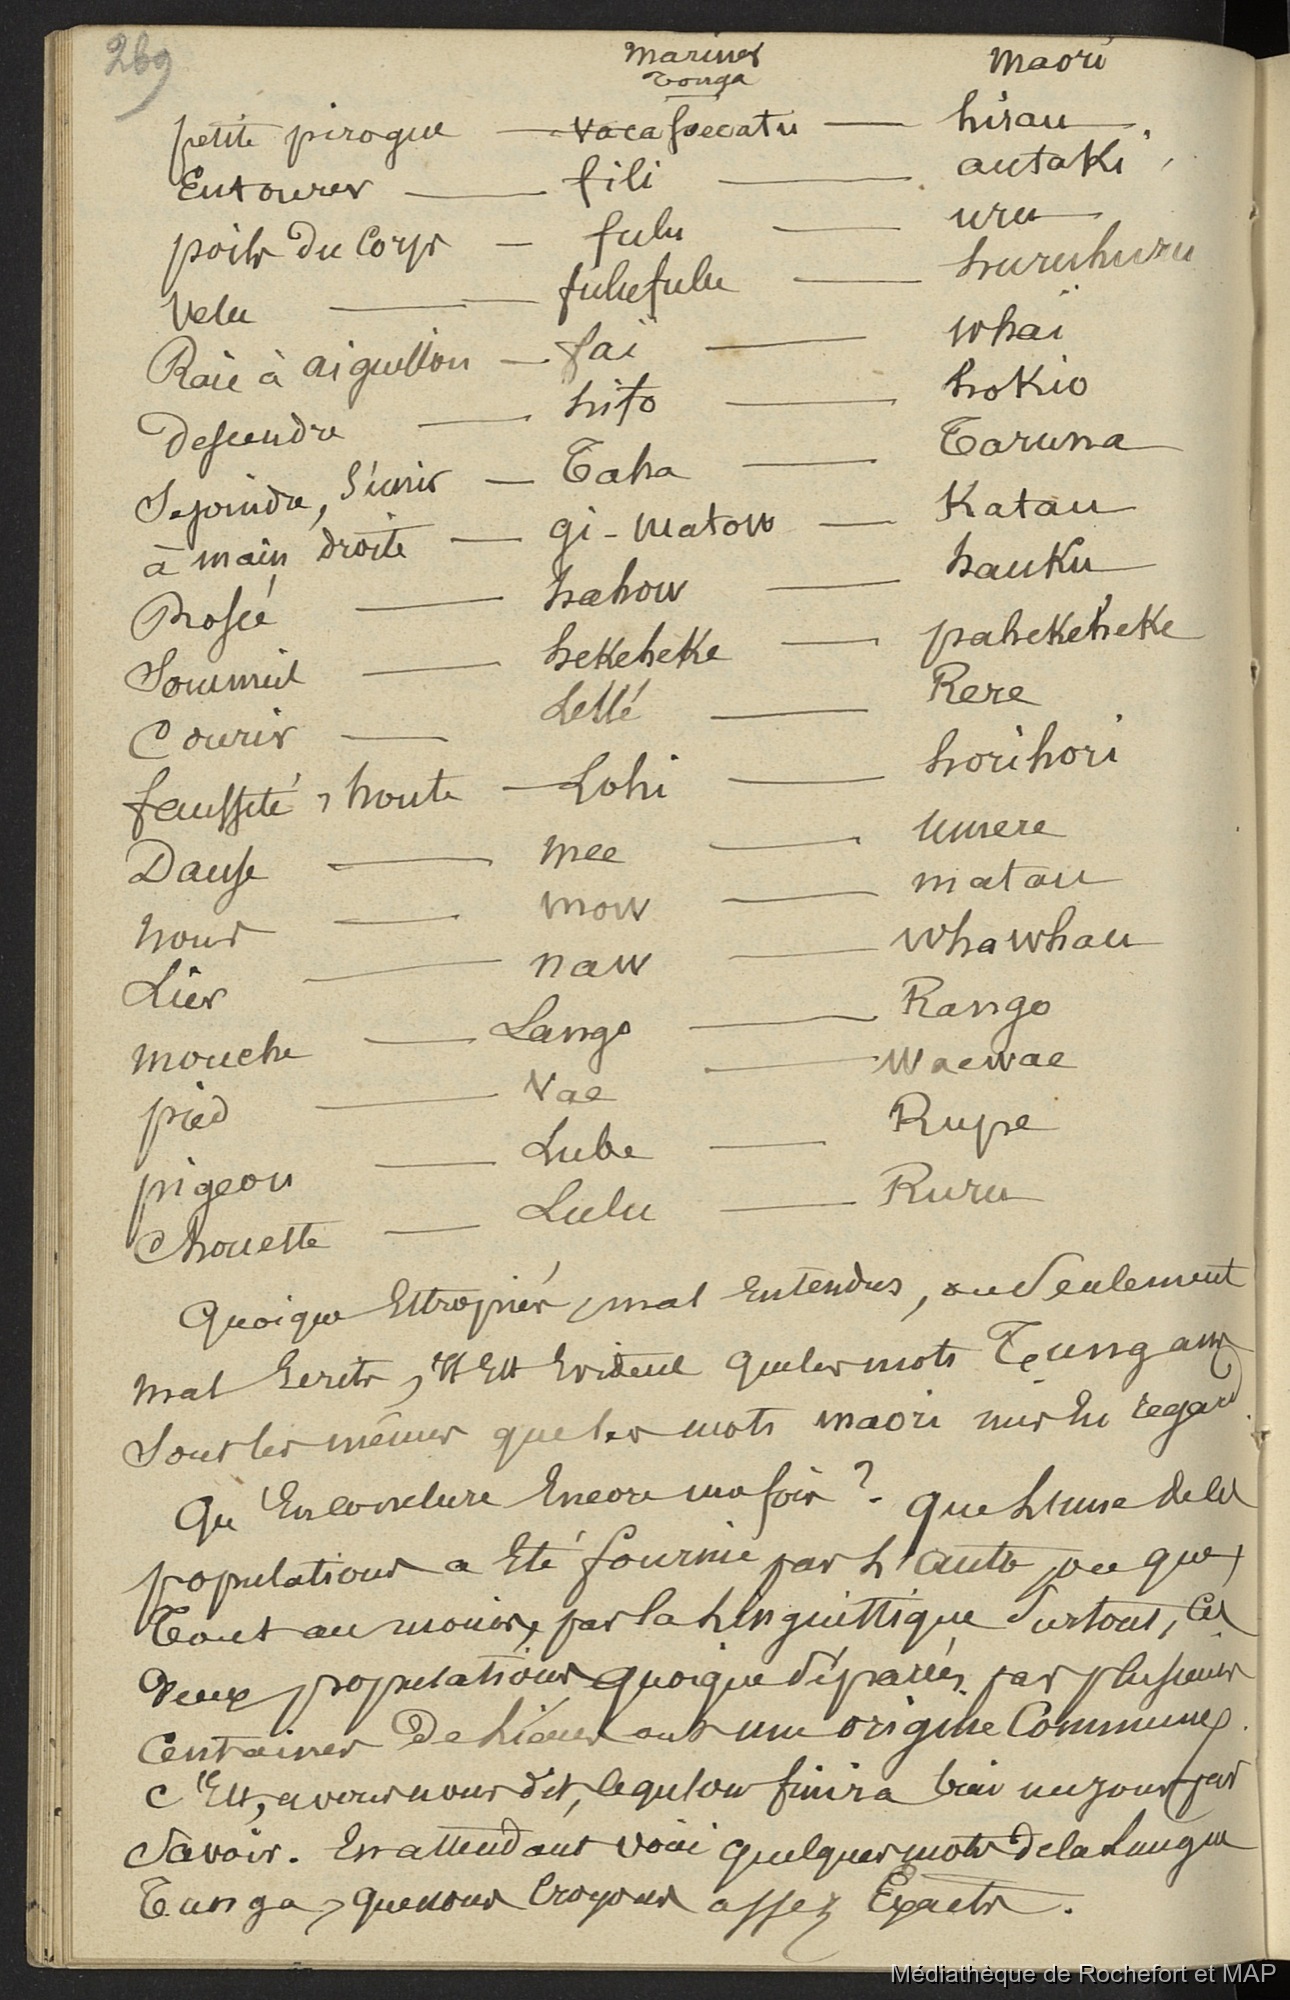 269
Mariner Maori
Tonga
petite pirogue — vaca foecatu — hisau
Entourer — fili — autaki
poils Du Corps — fulu — uru
Velu — fulufulu — huruhuru
Raie à aiguillon — faï — whaï
Descendre — hifo — hokio
Se joindre, S'unir — Taha — Taruna
à main droite — gi-matow — Katau
Rosée — hahow — hauku
Sommeil — hekeheke — pahekeheke
Courir — Lellé — Rere
fausseté, honte — Lohi — horihori
Danse — mee — umere
nous — mow — matau
Lier — naw — whawhau
mouche — Lango — Rango
pied — vae — waewae
pigeon — Lube — Rupe
Chouette — Lulu — Ruru
Quoique Estropiés, mal Entendus, ou Seulement
mal Ecrits, Il Est Evident que les mots Tungans
Sont les mêmes que les mots maori mis En regard.
Qu'En conclure Encore une fois ? que L'une de les
populations a Eté fournie par L'autre, ou que,
Tout au moins, par la Linguistique Surtout, ces
Deux populations quoique Séparées par plusieurs
Centaines De Lieues ont une origine Commune.
C'Est, avons nous dit, ce qu'on finira bien un jour par
Savoir. En attendant voici quelques mots de la Langue
Tunga, que nous Croyons assez Exacts.
Médiathèque de Rochefort et MAP